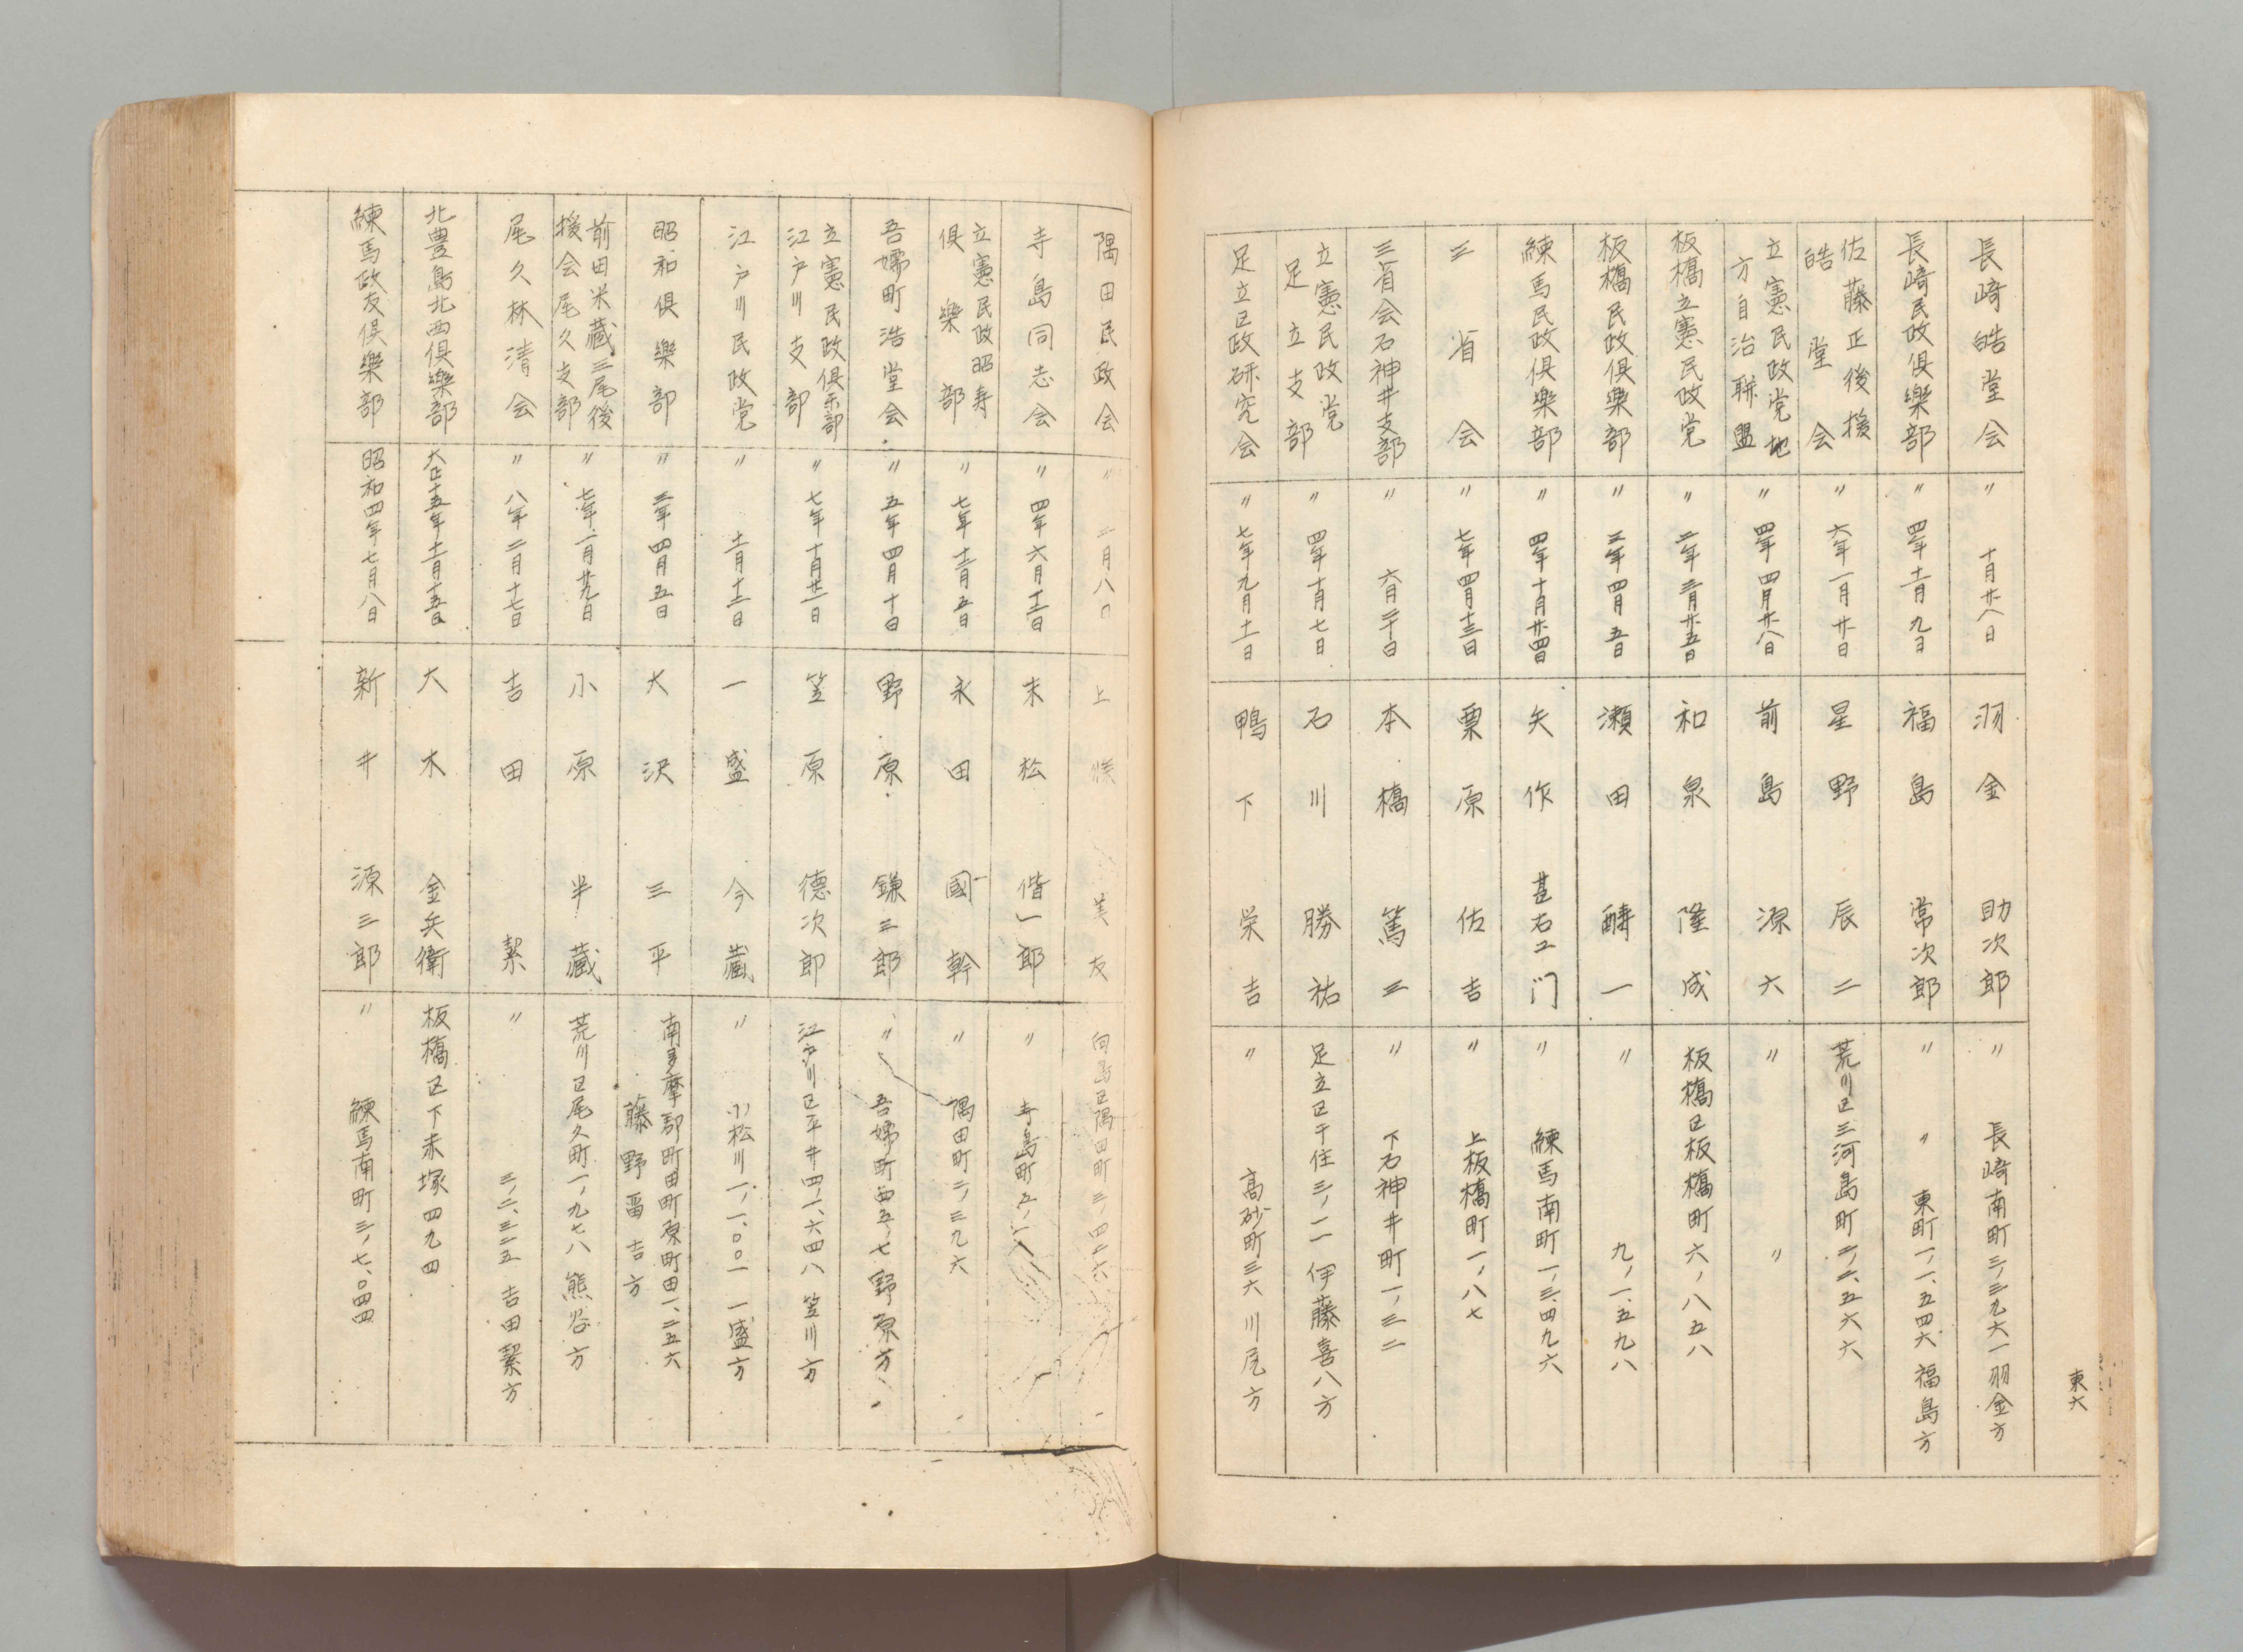 東六
長崎皓堂会 〃 十月廿八日 羽金助次郎 〃 長崎南町三ノ三九六一羽金方
長崎民政倶楽部 〃 四年十一月九日 福島常次郎 〃 〃 東町一ノ一、五四六 福島方
佐藤正後援
皓堂会 〃 六年一月廿日 星野辰二 荒川区三河島町二ノ二、五六六
立憲民政党地
方自治聯盟 〃 四年四月廿八日 前島源六 〃 〃
板橋立憲民政党 〃 二年三月廿五日 和泉隆成 板橋区板橋町六ノ八五八
板橋民政倶楽部 〃 三年四月五日 瀬田酵一 〃 九ノ一、五九八
練馬民政倶楽部 〃 四年十月廿四日 矢作甚右エ门 〃 練馬南町一ノ三、四九六
三省会 〃 七年四月十三日 栗原佐吉 〃 上板橋町一ノ八七
三省会石神井支部 〃 六月二十日 本橋篤三 〃 下石神井町一ノ三二
立憲民政党
足立支部 〃 四年十月七日 石川勝祐 足立区千住三ノ一一 伊藤喜八方
足立区政研究会 〃 七年九月十一日 鴨下栄吉 〃 高砂町三六 川尻方
隅田民政会 〃 二月八日 上條 美友 向島区隅田町三ノ四二六
寺島同志会 〃 四年六月十二日 末松偕一郎 〃 寺島町五ノ
立憲民政昭寿
倶楽部 〃 七年十二月五日 永田國幹 〃 隅田町二ノ三九六
吾嬬町浩堂会 〃 五年四月十日 野原鎌三郎 〃 吾嬬町西五ノ七 野原方
立憲民政倶楽部
江戸川支部 〃 七年十月廿一日 笠原德次郎 江戸川区平井四ノ一、六四八 笠川方
江戸川民政党 〃 十一月十二日 一盛今藏 〃 小松川一ノ一、〇〇一 一盛方
昭和倶樂部 〃 三年四月五日 大沢三平 南多摩郡町田町原町田一、二五六
藤野畄吉方
前田米藏三尾後
援会尾久支部 〃 七年一月廿九日 小原半藏 荒川区尾久町一ノ九七八 熊谷方
尾久林清会 〃 八年二月十七日 吉田潔 〃 三ノ二、三二五 吉田潔方
北豊島北西倶樂部 大正十五年十一月十五日 大木金兵衛 板橋区下赤塚四九四
練馬政友倶樂部 昭和四年七月八日 新井源三郎 〃 練馬南町三ノ七、〇四四